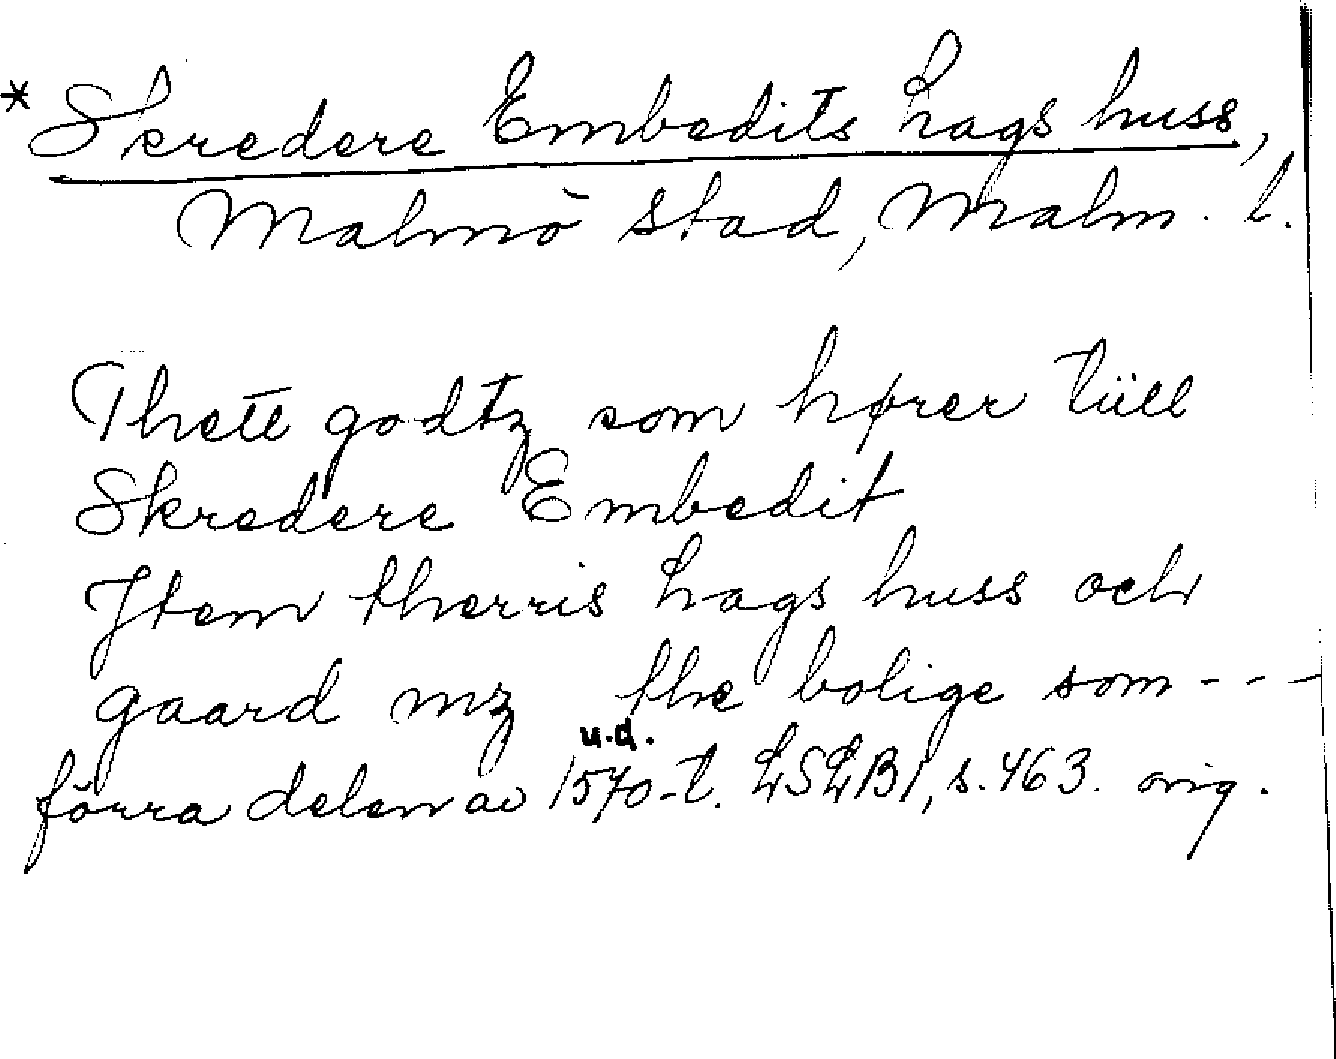 *Skredere Embedits Lags huss,
Malmö stad, Malm. l.
Thette godtz som hører tüll
Skredere Embedit
Jtem therris Lags huss och
gaard mz the bolige som ---
u.d.
förra delen av 1570-t. LSLB1, s. 463. orig.